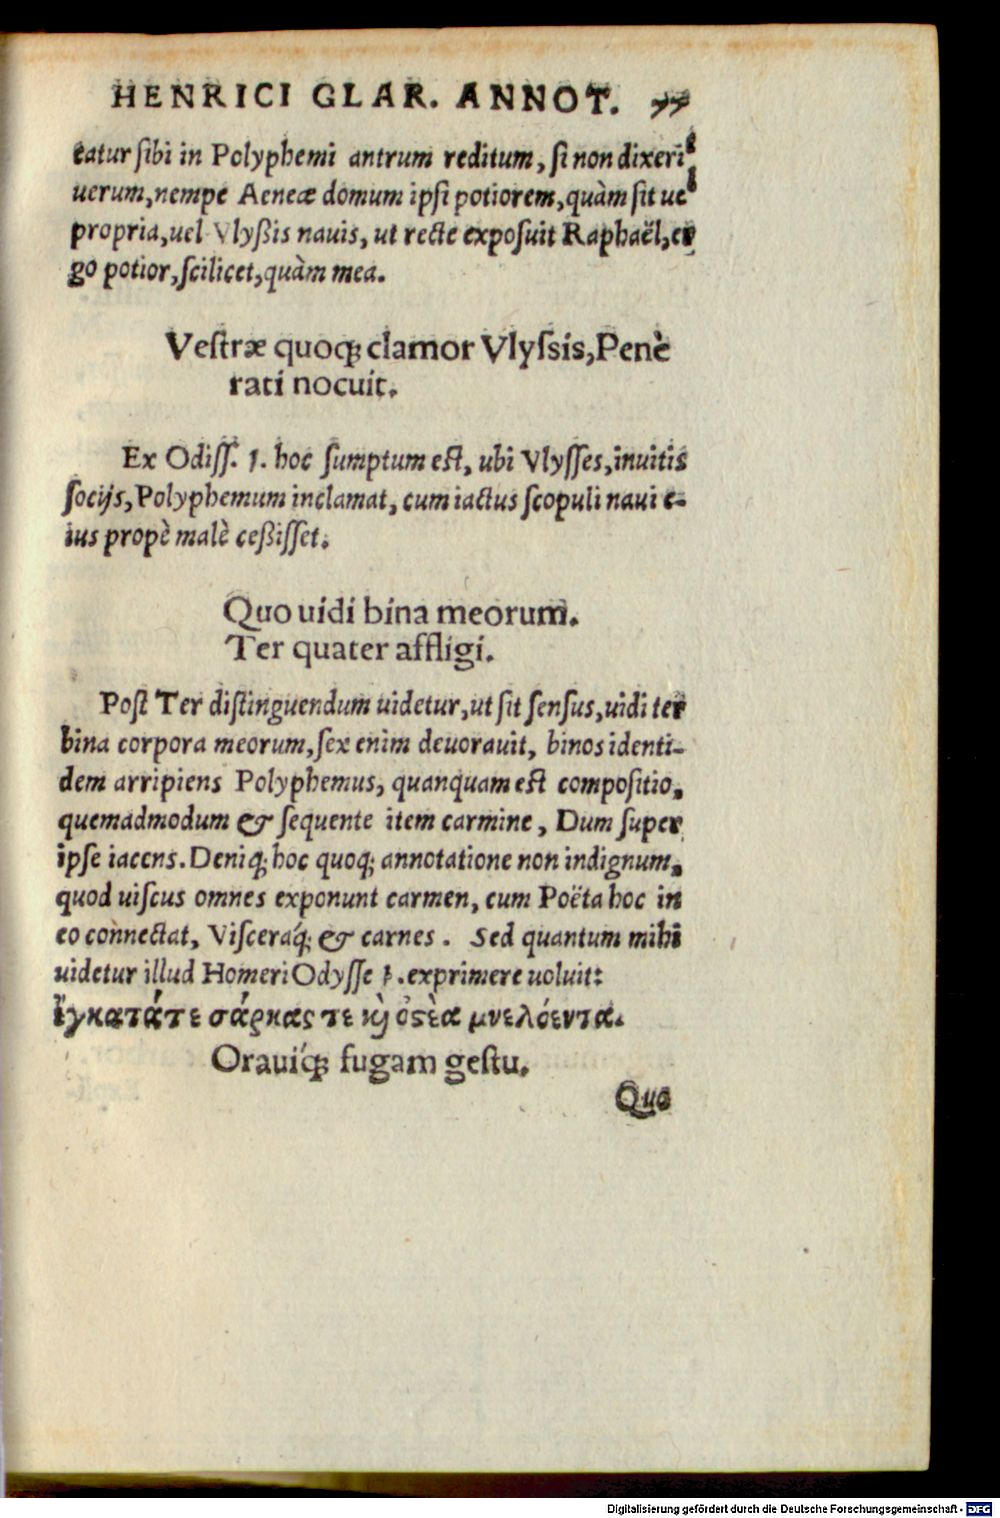 HENRICI GLAR. ANNOT. 77
tatur sibi in Polyphemi antrum reditum, si non dixerit
uerum, nempe Aeneæ domum ipsi potiorem, quàm sit uel
propria, uel Vlyßis nauis, ut recte exposuit Raphaël, er
go potior, scilicet, quàm mea.
Vestræ quoq; clamor Vlyssis, Penè
rati nocuit.
Ex Odiss. 1. hoc sumptum est, ubi Vlysses, inuitis
socijs, Polyphemum inclamat, cum iactus scopuli naui e-
ius propè malè ceßisset.
Quo uidi bina meorum.
Ter quater affligi.
Post Ter distinguendum uidetur, ut sit sensus, uidi ter
bina corpora meorum, sex enim deuorauit, binos identi-
dem arripiens Polyphemus, quanquam est compositio,
quemadmodum & sequente item carmine, Dum super
ipse iacens. Deniq; hoc quoq; annotatione non indignum,
quod uiscus omnes exponunt carmen, cum Poëta hoc in
eo connectat, Visceraq́; & carnes. Sed quantum mihi
uidetur illud Homeri Odysse 1. exprimere uoluit:
ἔγκατά τε σάρκας τε κỳ ὀστέα μυελόεντα.
Orauiq́; fugam gestu.
Quo
Digitalisierung gefördert durch die Deutsche Forschungsgemeinschaft - DFG